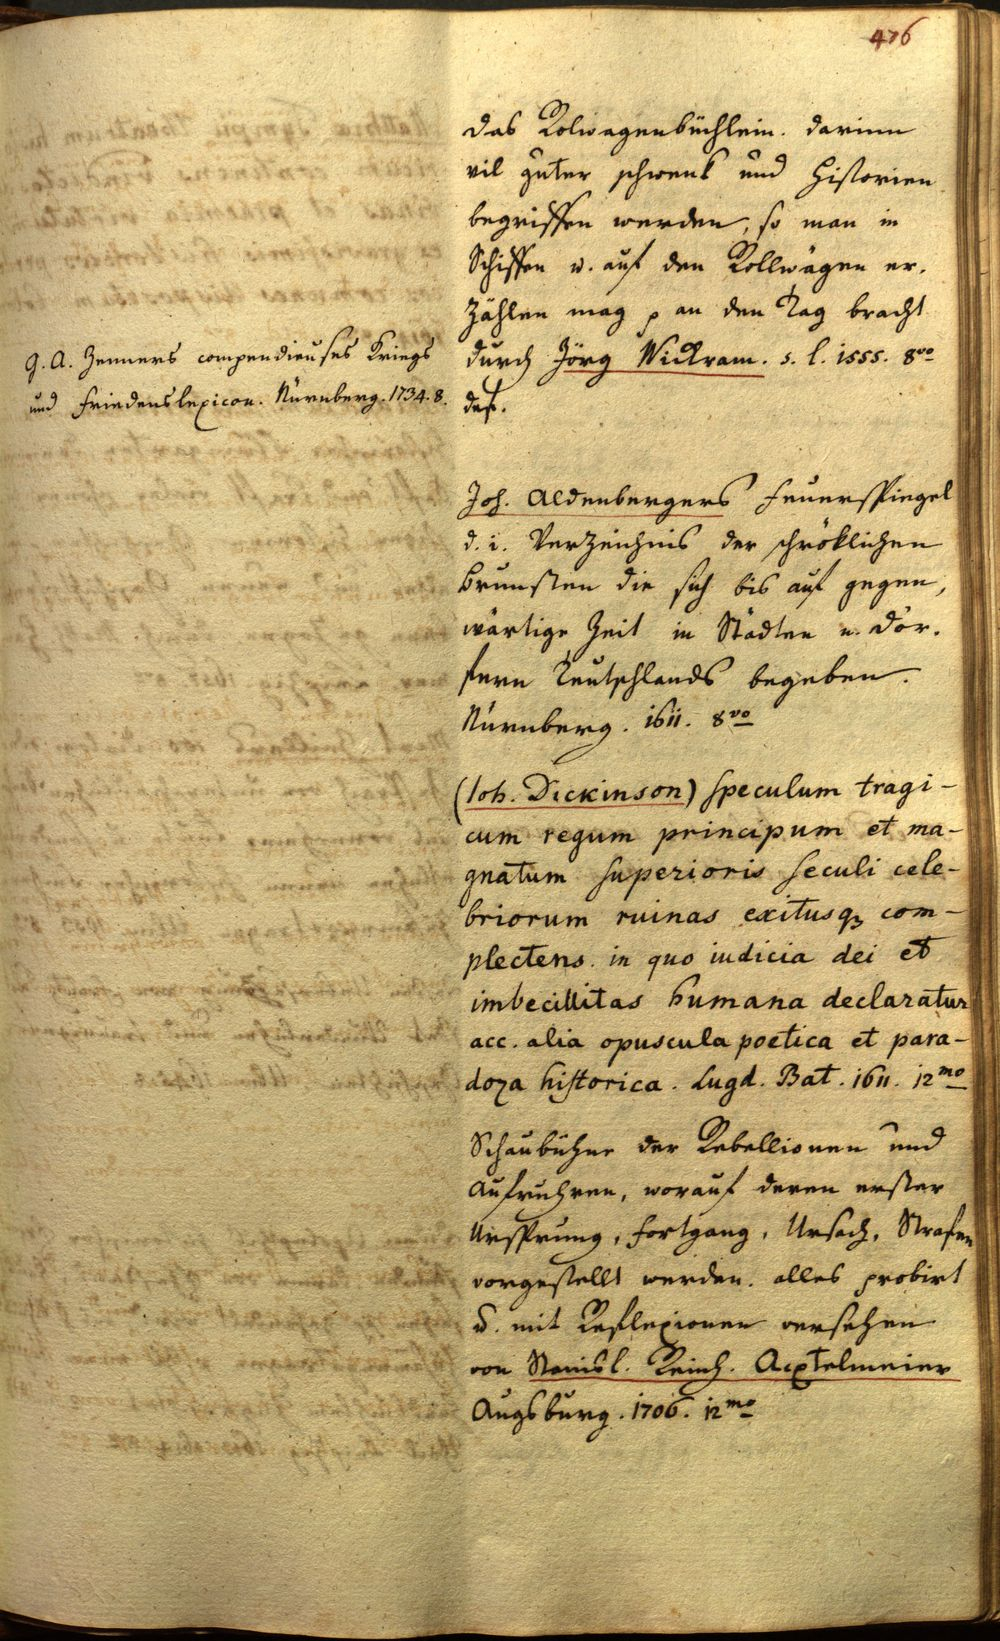 476
das Rolwagenbüchlein. darinn
vil guter schwenk und Historien
begriffen werden, so man in
Schiffen u. auf den Rollwägen er-
zählen mag p an den Tag bracht
durch Jörg Wickram. s. l. 1555. 8vo
def.
G. A. Zenners compendieuses Kriegs
und Friedenslexicon. Nürnberg. 1734. 8.
Joh. Aldenbergers Feuerspiegel
d. i. Verzeichnis der schröklichen
Brunsten die sich bis auf gegen,
wärtige Zeit in Städten u. Dör-
fern Teutschlands begeben.
Nürnberg. 1611. 8vo
(Ioh. Dickinson) speculum tragi-
cum regum principum et ma-
gnatum superioris seculi cele-
briorum ruinas exitusq3 com-
plectens. in quo iudicia dei et
imbecillitas humana declaratur
acc. alia opuscula poetica et para-
doxa historica. Lugd. Bat. 1611. 12mo
Schaubühne der Rebellionen und
Aufruhren, worauf deren erster
Ursprung, Fortgang, Ursach, Strafen
vorgestellt werden. alles probirt
u. mit Reflexionen versehen
von Stanisl. Reinh. Acxtelmeier
Augsburg. 1706. 12mo